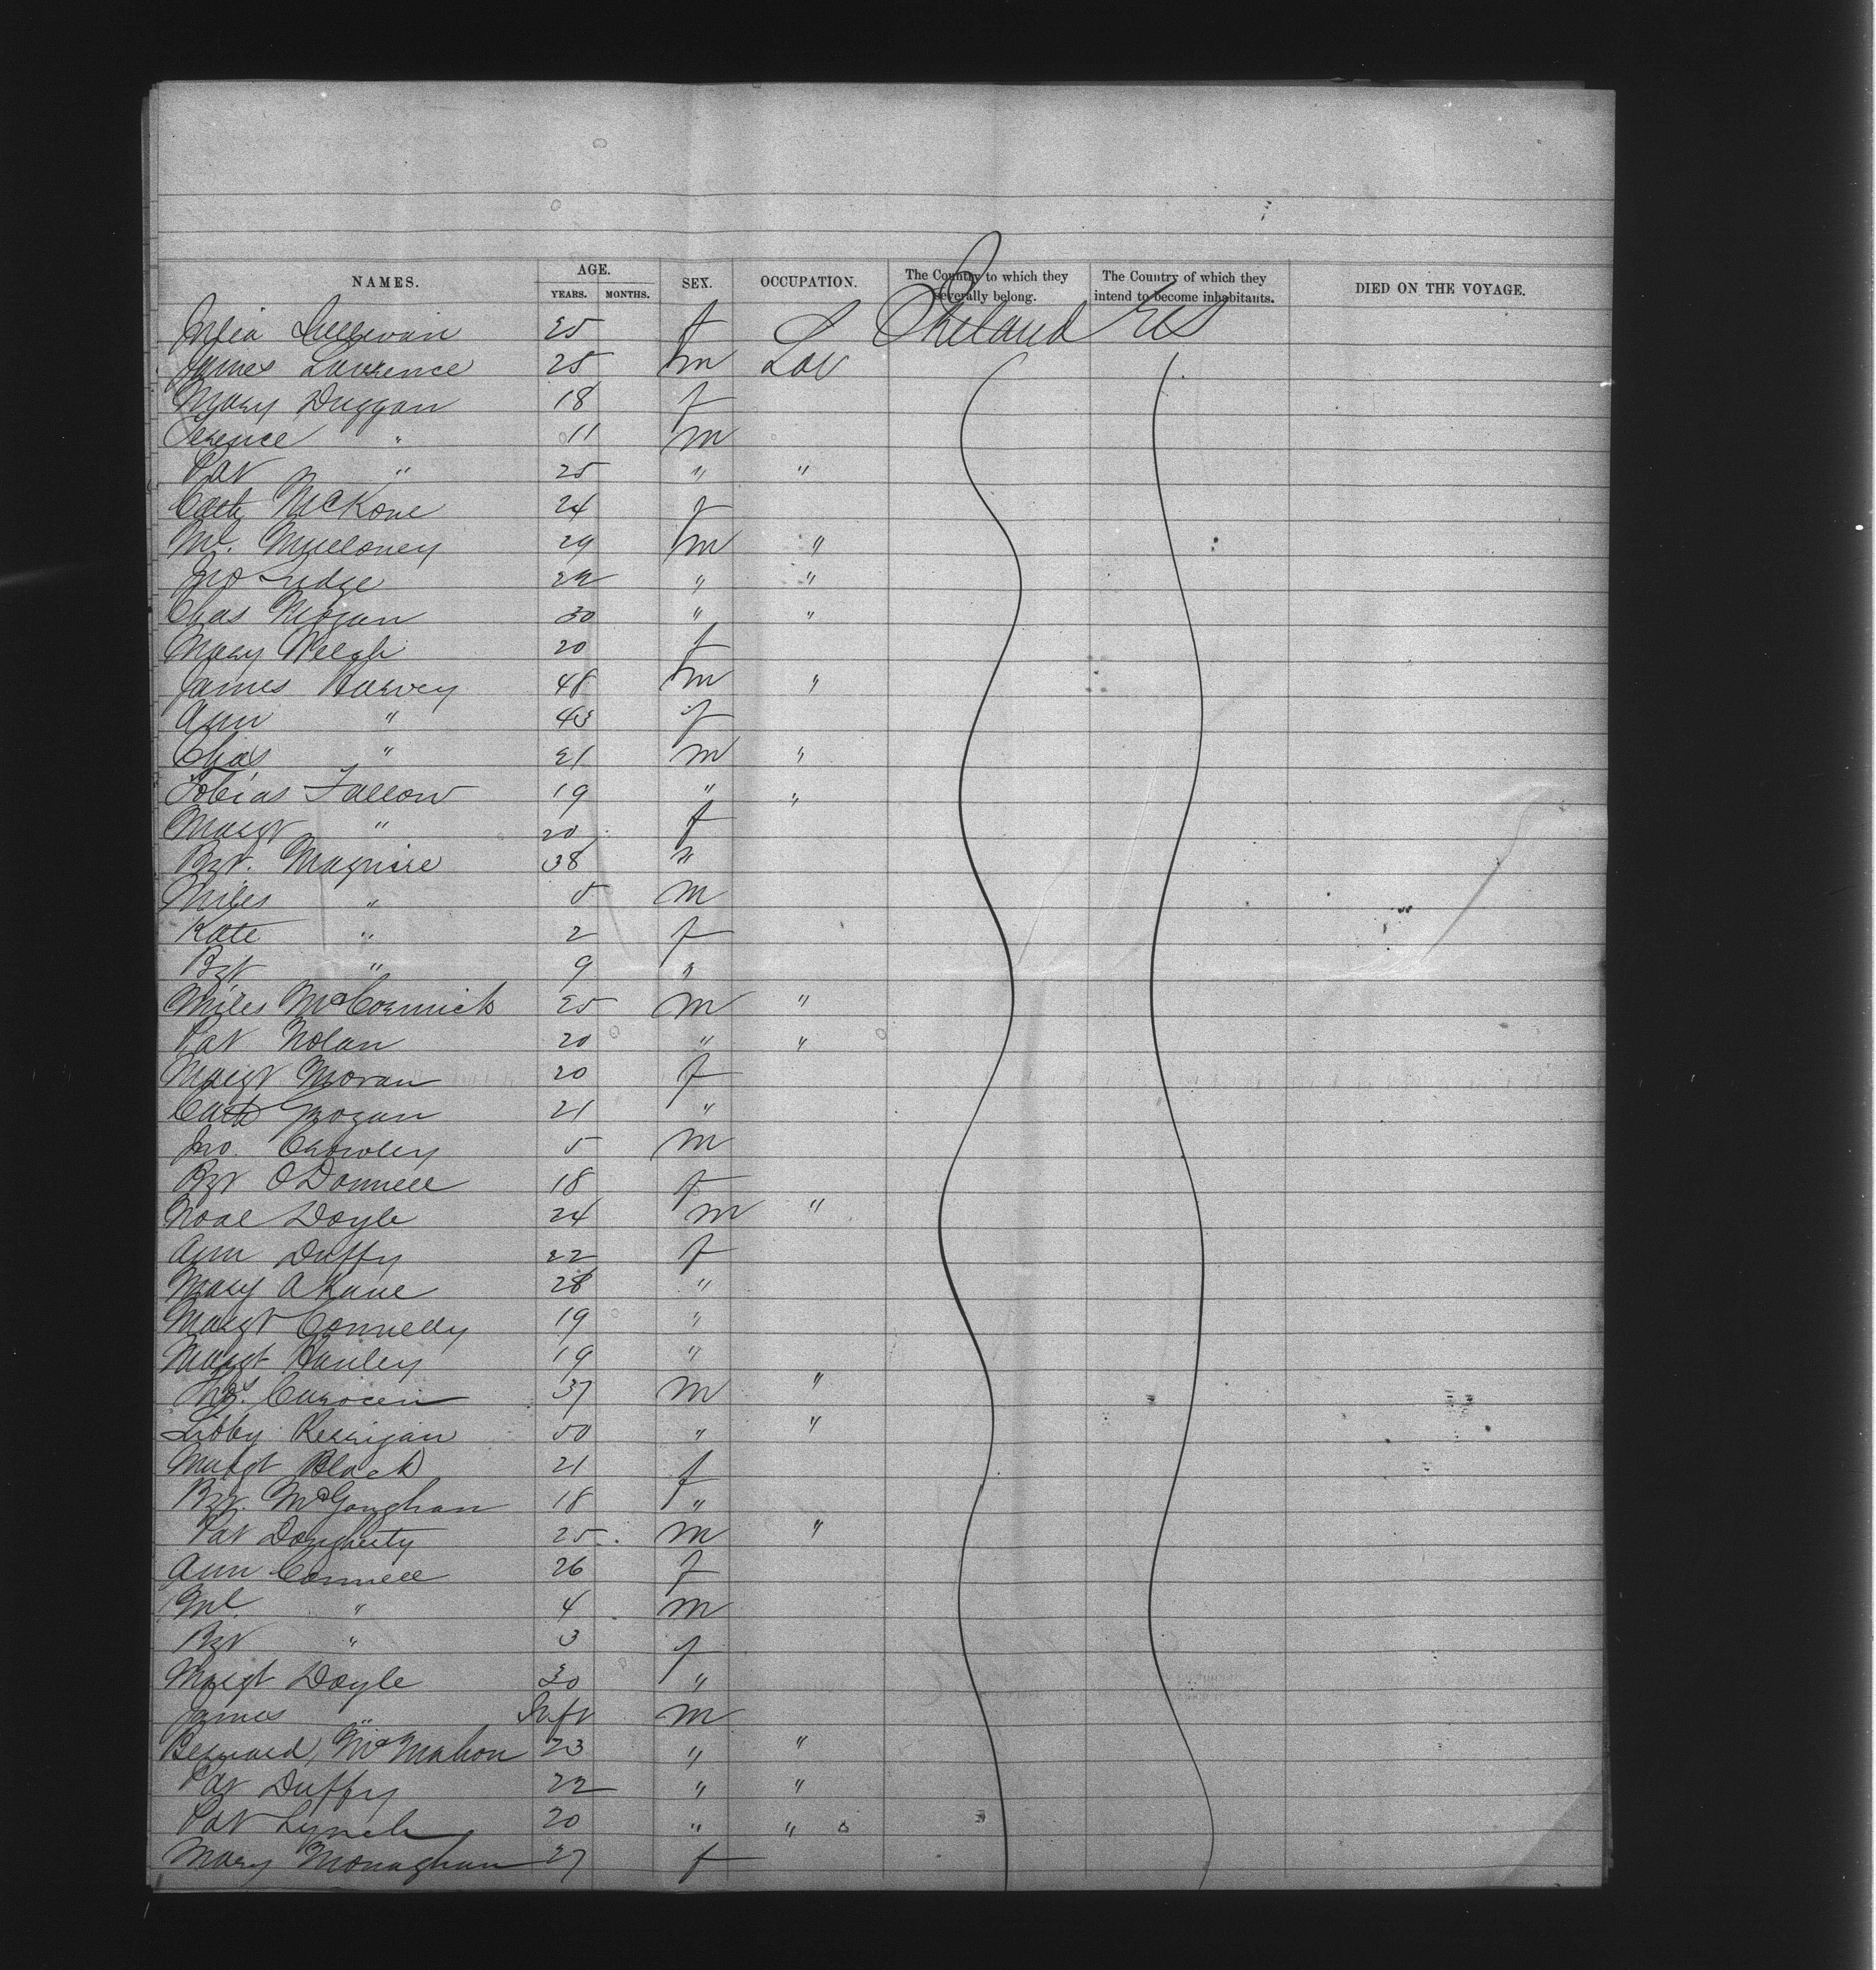 NAMES. AGE. YEARS. MONTHS. SEX. OCCUPATION. The Country to which they severally belong. The Country of which they intend to become inhabitants. DIED ON THE VOYAGE.
Julia Sullivan 25 f Ireland US
James Lawrence 25 m Lab
Mary Duggan 18 f
Terence " 11 m
Pat " 25 " "
Cath McKone 24 f
Ml. Mulloney 29 m "
Jno Lydge 22 " "
Chas Mogan 30 " "
Mary Welsh 20 f
James Harvey 48 m "
Ann " 43 f
Chas " 21 m "
Tobias Fallow 19 " "
Margt " 20 f
Bgt. Maguire 38 "
Miles " 5 m
Kate " 2 f
Bgt " 9 "
Miles McCormick 25 m "
Pat Nolan 20 " "
Margt Moran 20 f
Cath Grogan 21 "
Jno. Crowley 5 m
Bgt O'Donnell 18 f
Noal Doyle 24 m "
Ann Duffy 22 f
Mary A Kane 28 "
Margt Connelly 19 "
Margt Hanley 19 "
37 m "
Libby Kerrigan 50 " "
Margt Black 21 f
Bgt. McGoughan 18 "
Pat Dougherty 25 m "
Ann Connell 26 f
Ml. " 4 m
Bgt " 3 f
Margt Doyle 30 "
James " Inft m
Bernard McMahon 23 " "
Pat Duffy 22 " "
Pat Lynch 20 " "
Mary Monaghan 27 f